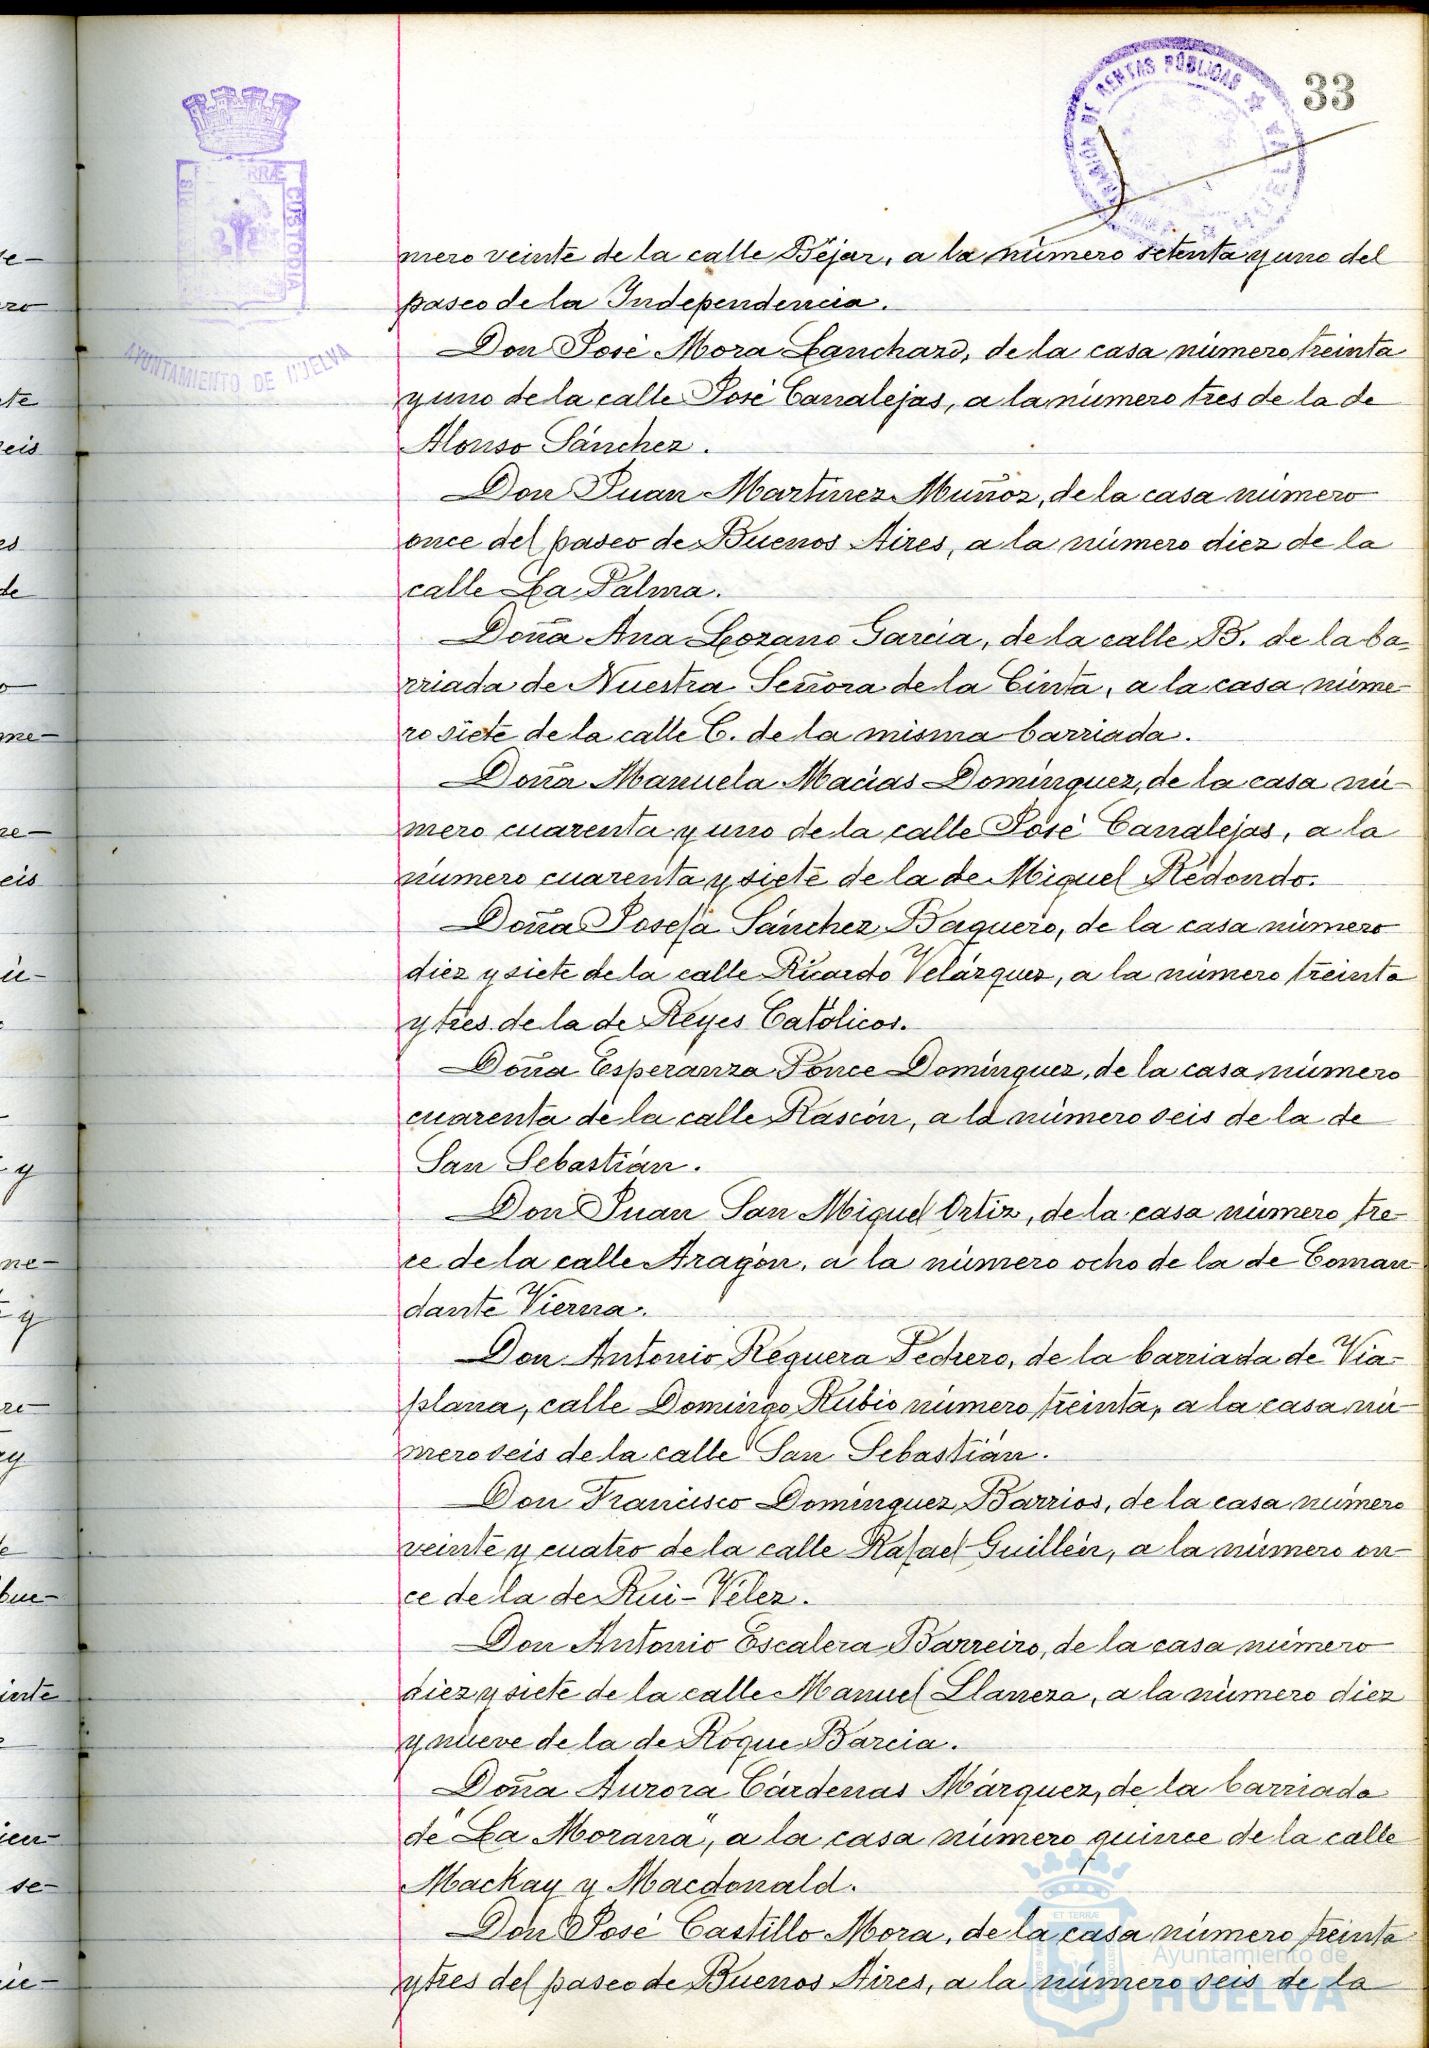 33
RENTAS PÚBLICAS
HUELVA
TERRÆ
CUSTODIA
AYUNTAMIENTO DE HUELVA
mero veinte de la calle Béjar, a la número setenta y uno del
paseo de la Independencia.
Don José Mora Lanchard, de la casa número treinta
y uno de la calle José Canalejas, a la número tres de la de
Alonso Sánchez.
Don Juan Martínez Muñoz, de la casa número
once del paseo de Buenos Aires, a la número diez de la
calle La Palma.
Doña Ana Lozano García, de la calle B. de la ba-
rriada de Nuestra Señora de la Cinta, a la casa núme-
ro siete de la calle C. de la misma barriada.
Doña Manuela Macías Domínguez, de la casa nú-
mero cuarenta y uno de la calle José Canalejas, a la
número cuarenta y siete de la de Miguel Redondo.
Doña Josefa Sánchez Baquero, de la casa número
diez y siete de la calle Ricardo Velázquez, a la número treinta
y tres de la de Reyes Católicos.
Doña Esperanza Ponce Domínguez, de la casa número
cuarenta de la calle Rascón, a la número seis de la de
San Sebastián.
Don Juan San Miguel Ortiz, de la casa número tre-
ce de la calle Aragón, a la número ocho de la de Coman-
dante Vierna.
Don Antonio Requera Pedrero, de la barriada de Via-
plana, calle Domingo Rubio número treinta, a la casa nú-
mero seis de la calle San Sebastián.
Don Francisco Domínguez Barrios, de la casa número
veinte y cuatro de la calle Rafael Guillén, a la número on-
ce de la de Rui-Vélez.
Don Antonio Escalera Barreiro, de la casa número
diez y siete de la calle Manuel Llaneza, a la número diez
y nueve de la de Roque Barcia.
Doña Aurora Cárdenas Márquez, de la barriada
de "La Morana", a la casa número quince de la calle
Mackay y Macdonald.
Don José Castillo Mora, de la casa número treinta
y tres del paseo de Buenos Aires, a la número seis de la
Ayuntamiento de
HUELVA